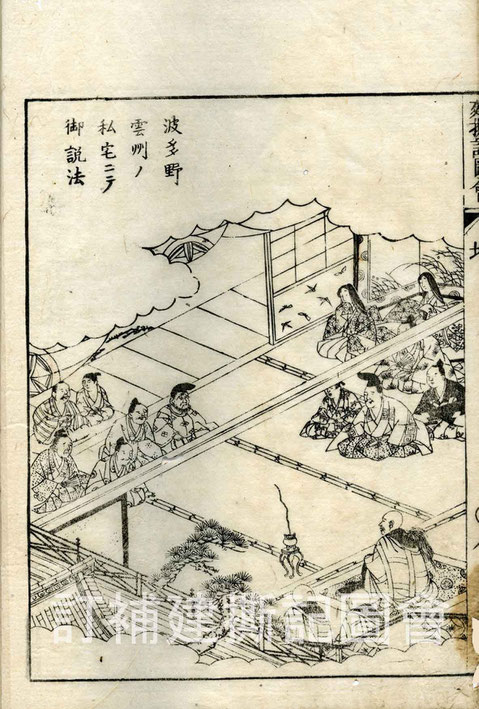 波多野
雲州ノ
私宅ニテ
御説法
訂補建撕記圖會